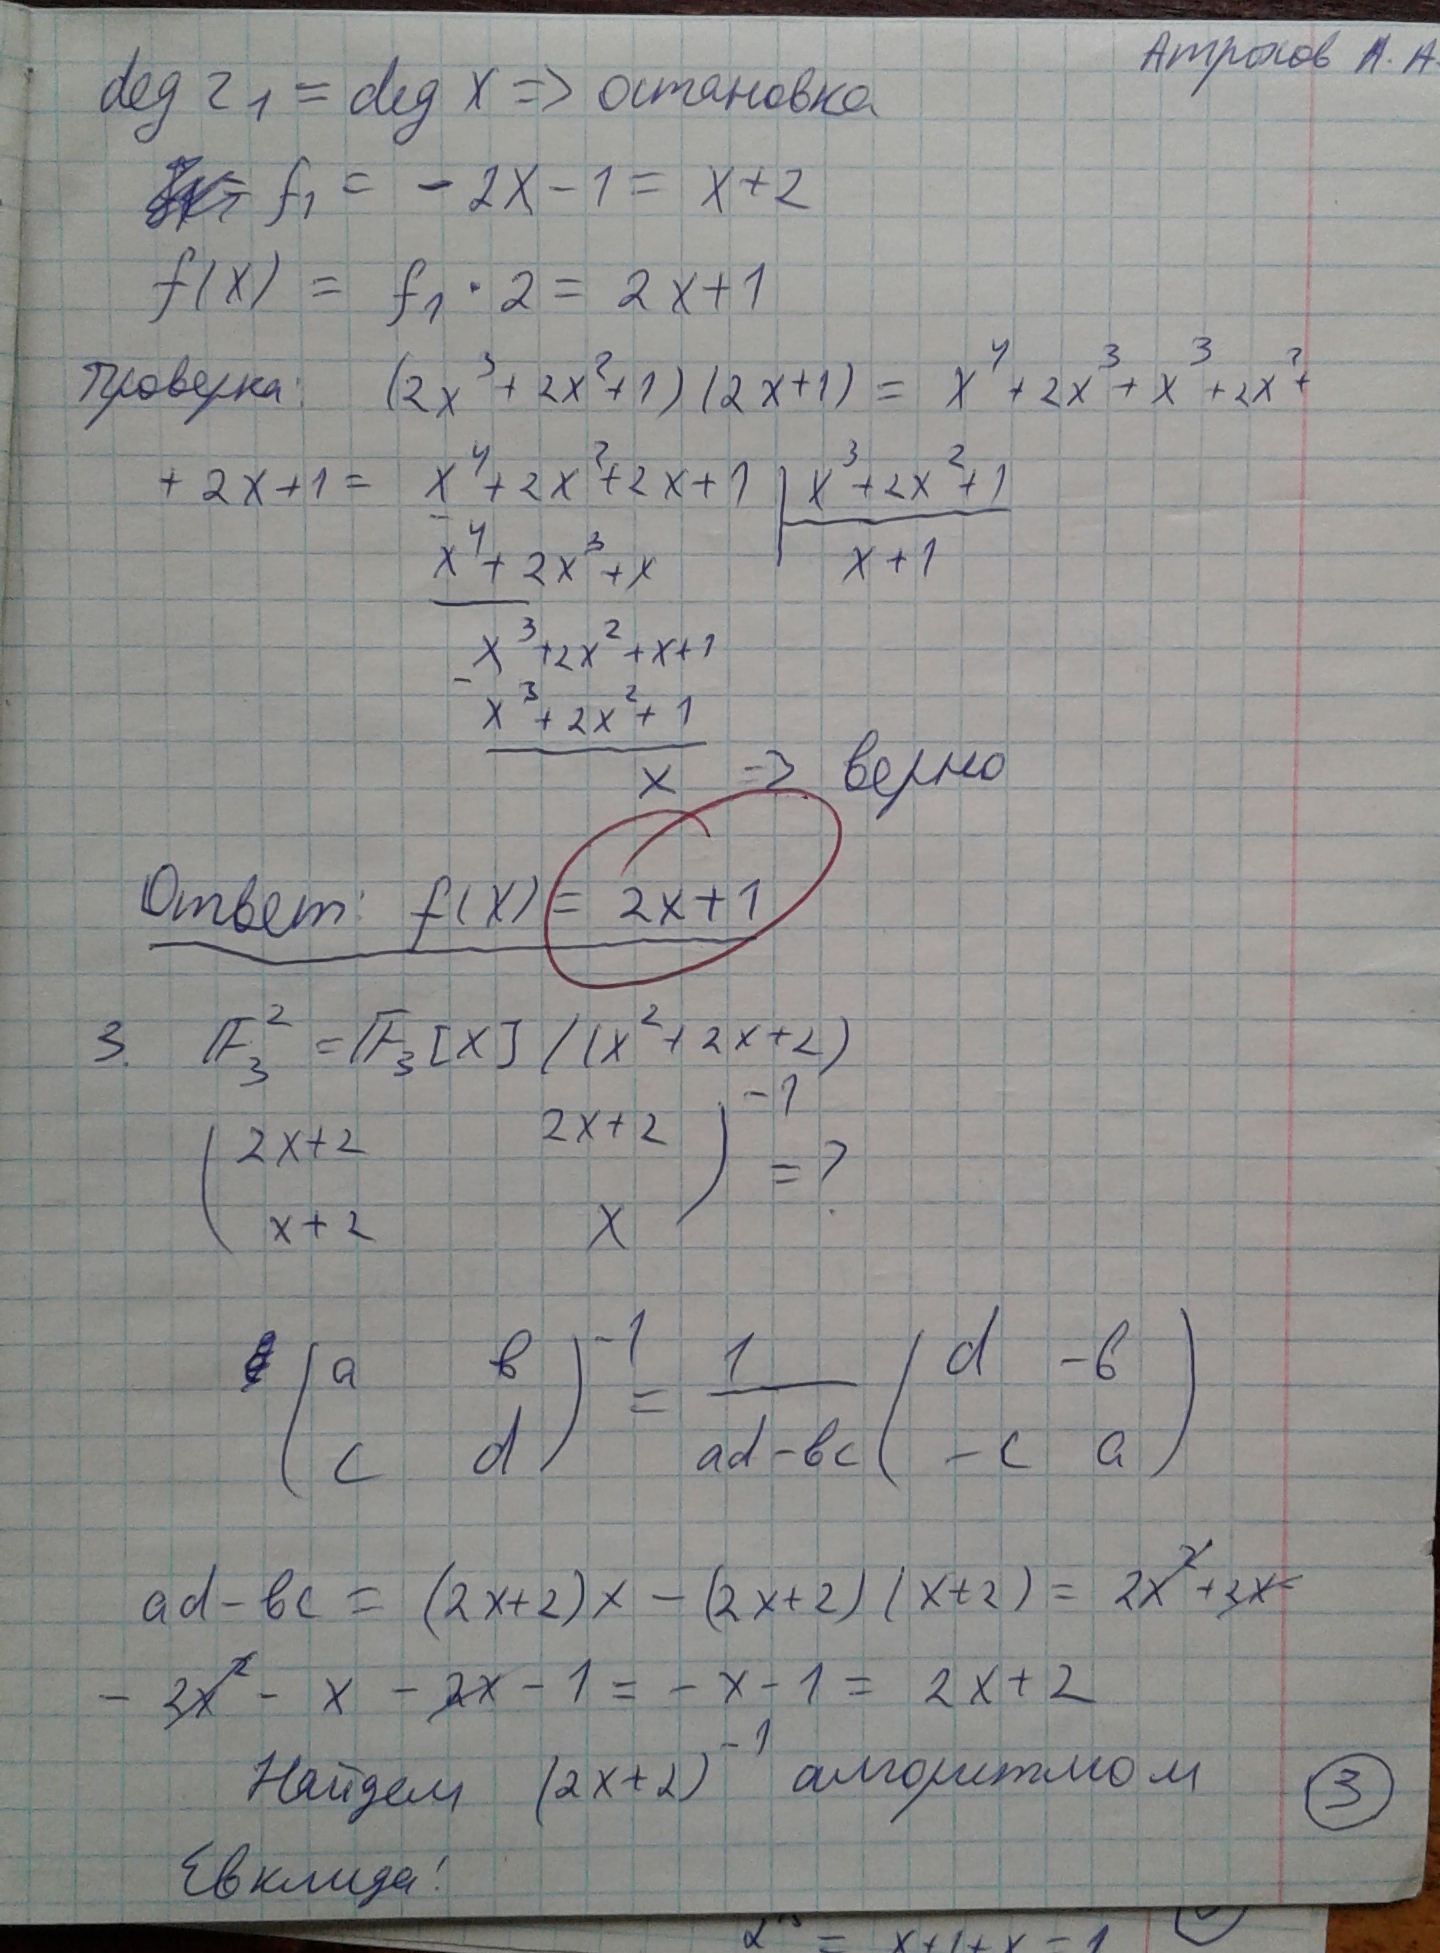 Атрохов А. А.
deg r₁ = deg x => остановка
f₁ = - 2x - 1 = x + 2
f(x) = f₁ · 2 = 2x + 1
Проверка: (2x³ + 2x² + 1)(2x + 1) = x⁴ + 2x³ + x³ + 2x² +
+ 2x + 1 = x⁴ + 2x² + 2x + 1 | x³ + 2x² + 1
- x⁴ + 2x³ + x | x + 1
x³ + 2x² + x + 1
- x³ + 2x² + 1
x => верно
Ответ: f(x) = 2x + 1
3. 𝔽₃² = 𝔽₃[x] / (x² + 2x + 2)
( 2x + 2 2x + 2 )⁻¹ = ?
( x + 2 x )
( a b )⁻¹ = 1 ( d -b )
( c d ) ad - bc ( -c a )
ad - bc = (2x + 2)x - (2x + 2)(x + 2) = 2x² + 2x -
- 2x² - x - 2x - 1 = - x - 1 = 2x + 2
Найдем (2x + 2)⁻¹ алгоритмом
Евклида!
3
= x + 1 + x = 1